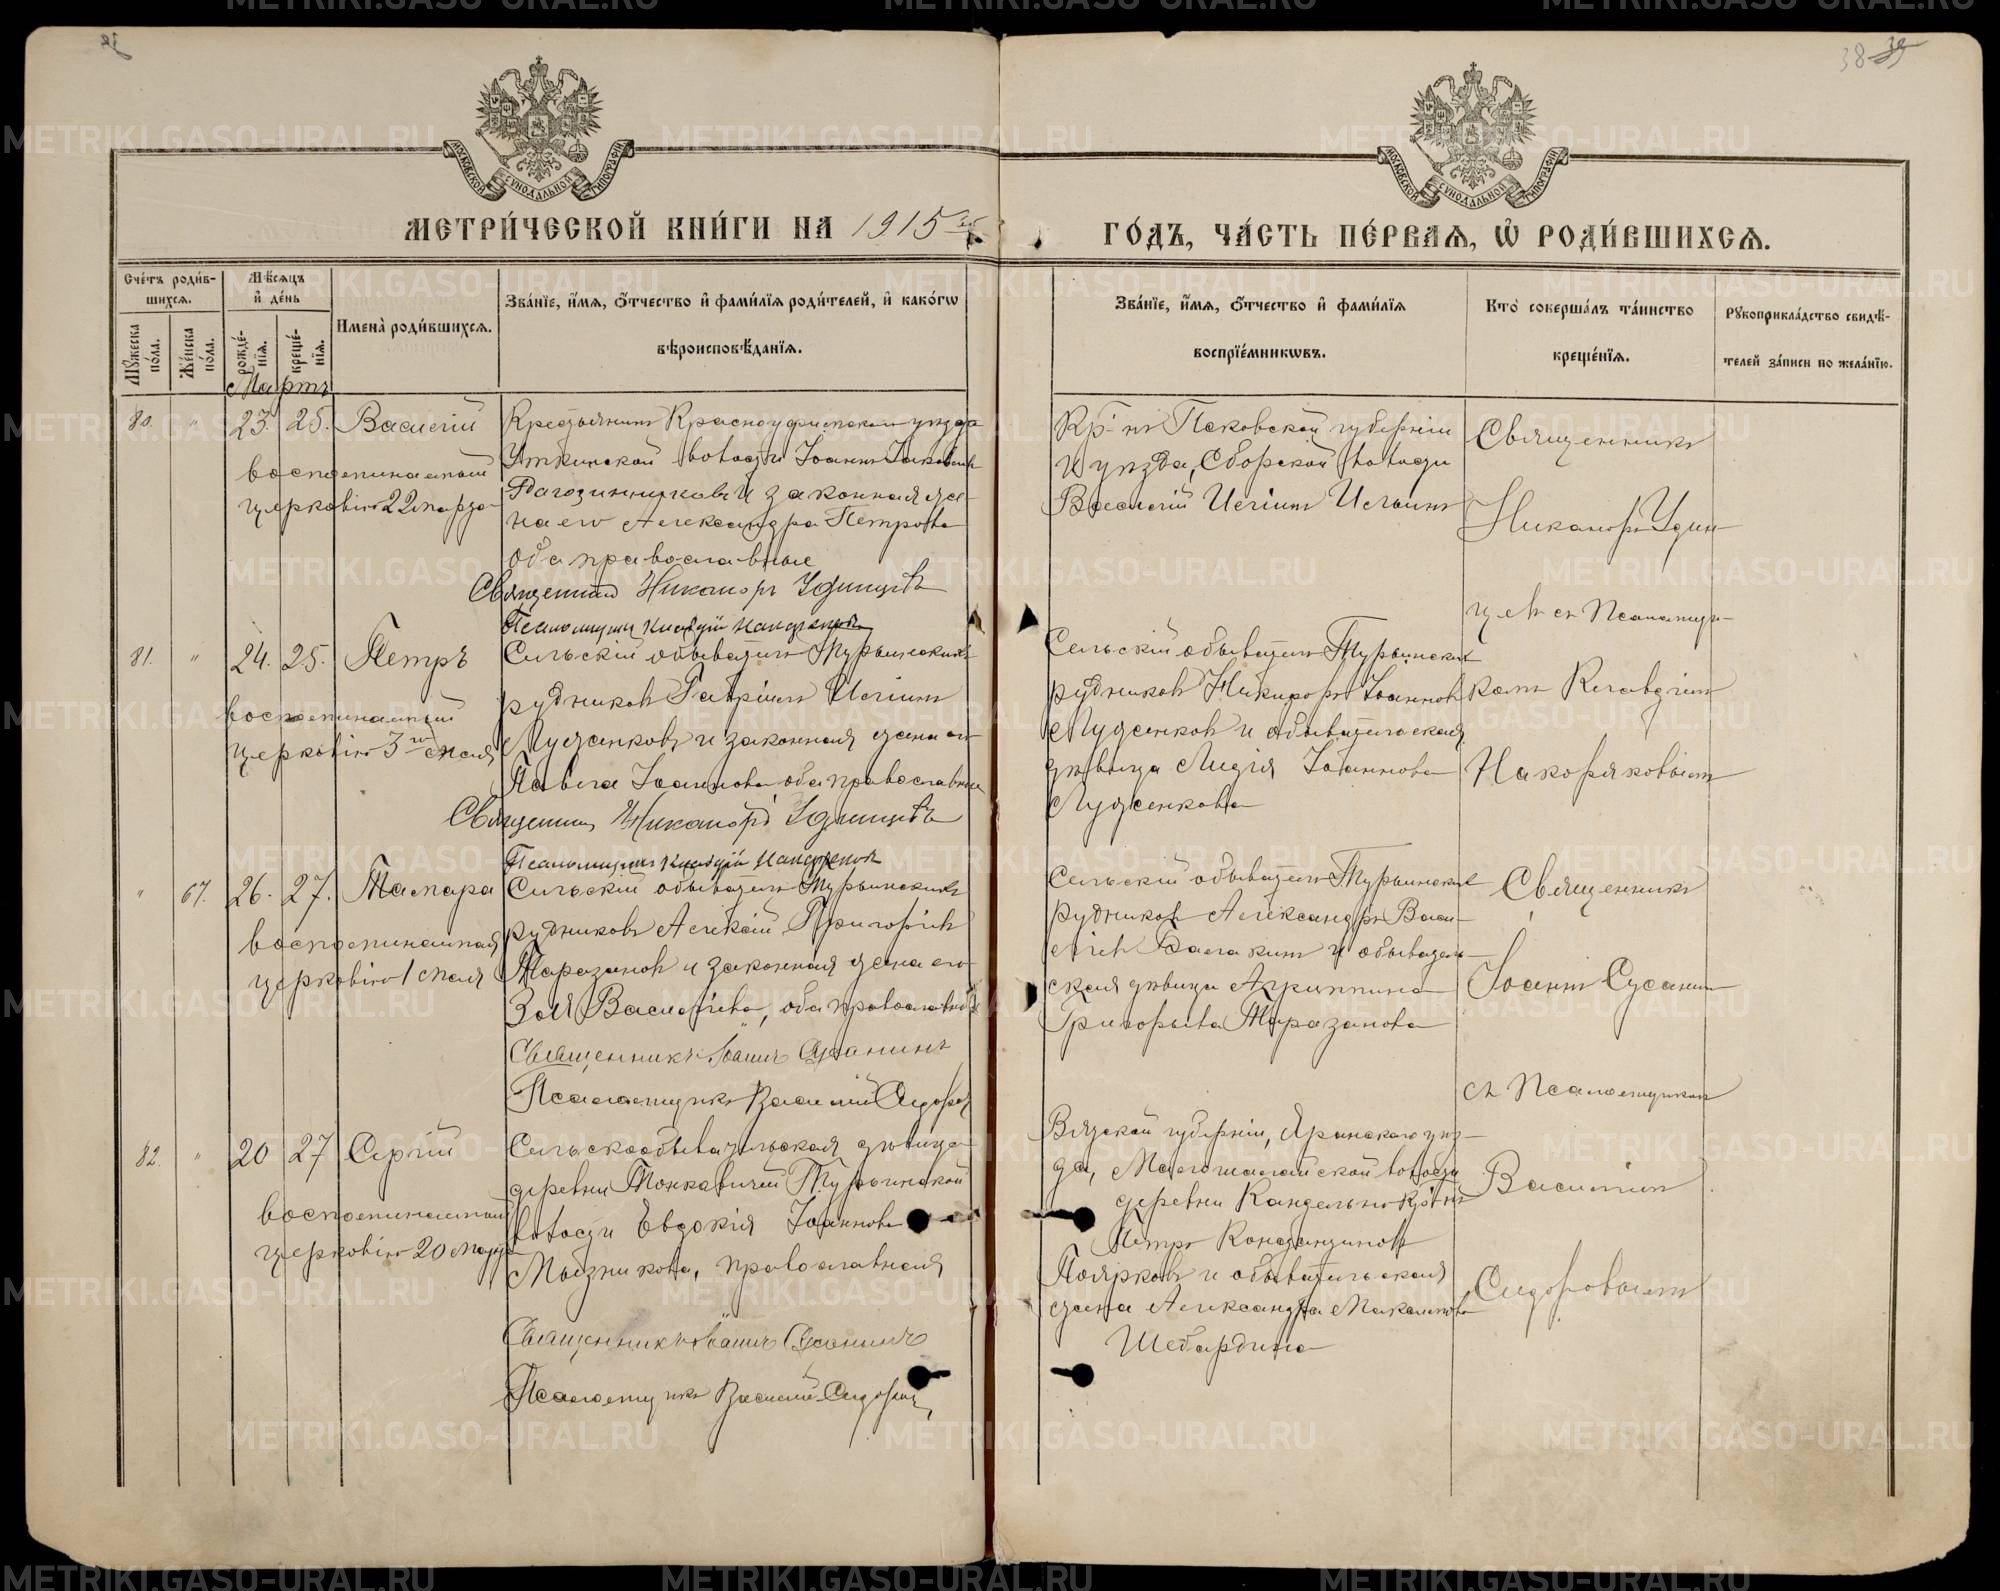 МЕТРИ́ЧЕСКОЙ КНИ́ГИ НА 1915
ГО́ДЪ, ЧА́СТЬ ПЕ́РВАЯ, Ѡ҆ РОДИ́ВШИХСЯ.
38
МОСКОВСКОЙ СѴНОДАЛЬНОЙ ТИПОГРАФІИ
МОСКОВСКОЙ СѴНОДАЛЬНОЙ ТИПОГРАФІИ
Сче́тъ роди́в-
шихся.
Мꙋ́жеска по́ла.
Же́нска по́ла.
Мѣ́сяцъ
и҆ де́нь
рожде́-
нїя.
креще́-
нїя.
Имена̀ роди́вшихся.
Зва́нїе, и҆́мя, ѻ҆́тчество и҆ фами́лїя роди́телей, и҆ како́гѡ
вѣроисповѣ́данїя.
Зва́нїе, и҆́мя, ѻ҆́тчество и҆ фами́лїя
воспрїе́мникѡвъ.
Кто̀ соверша́лъ та́инство
креще́нїя.
Рꙋкоприкла́дство свидѣ́-
телей за́писи по жела́нїю.
Мартъ
80. " 23. 25. Василій
воспоминаемый
церковію 22 марта
Крестьянинъ Красноуфимскаго уѣзда
Уткинской волости Іоаннъ Іаковлевъ
Рагозинниковъ и законная же-
на его Александра Петрова
оба православные
Священникъ Никаноръ Удинцевъ
Псаломщикъ Клавдій Накоряковъ
Кр-нъ Псковской губерніи
и уѣзда, Сборской волости
Василій Иліинъ Ильинъ
Священникъ
Никаноръ Удин-
цевъ съ Псаломщи-
комъ Клавдіемъ
Накоряковымъ
81. " 24. 25. Петръ
воспоминаемый
церковію 3го мая
Сельскій обыватель Турьинскихъ
рудниковъ Гавріилъ Иліинъ
Лученковъ и законная жена его
Павла Іоаннова, оба православные
Священникъ Никаноръ Удинцевъ
Псаломщикъ Клавдій Накоряковъ
Сельскій обыватель Турьинскихъ
рудниковъ Никифоръ Іоанновъ
Лученковъ и обывательская
дѣвица Лидія Іоаннова
Лученкова
" 67. 26. 27. Тамара
воспоминаемая
церковію 1 мая
Сельскій обыватель Турьинскихъ
рудниковъ Алексій Григоріевъ
Таразановъ и законная жена его
Зоя Василіева, оба православные
Священникъ Іоаннъ Сусанинъ
Псаломщикъ Василій Сидоровъ
Сельскій обыватель Турьинскихъ
рудниковъ Александръ Васи-
ліевъ Балакинъ и обыватель-
ская дѣвица Агриппина
Григорьева Таразанова
Священникъ
Іоаннъ Сусанинъ
съ Псаломщикомъ
Василіемъ
Сидоровымъ
82. " 20 27 Сергій
воспоминаемый
церковію 20 марта
Сельскообывательская дѣвица
деревни Тонкавичей Турьинской
волости Евдокія Іоаннова
Мызникова, православная
Священникъ Іоаннъ Сусанинъ
Псаломщикъ Василій Сидоровъ
Вятской губерніи, Яранскаго уѣз-
да, волости
деревни кр-нъ
Петръ Константиновъ
Поярковъ и обывательская
жена Александра
Шебардина